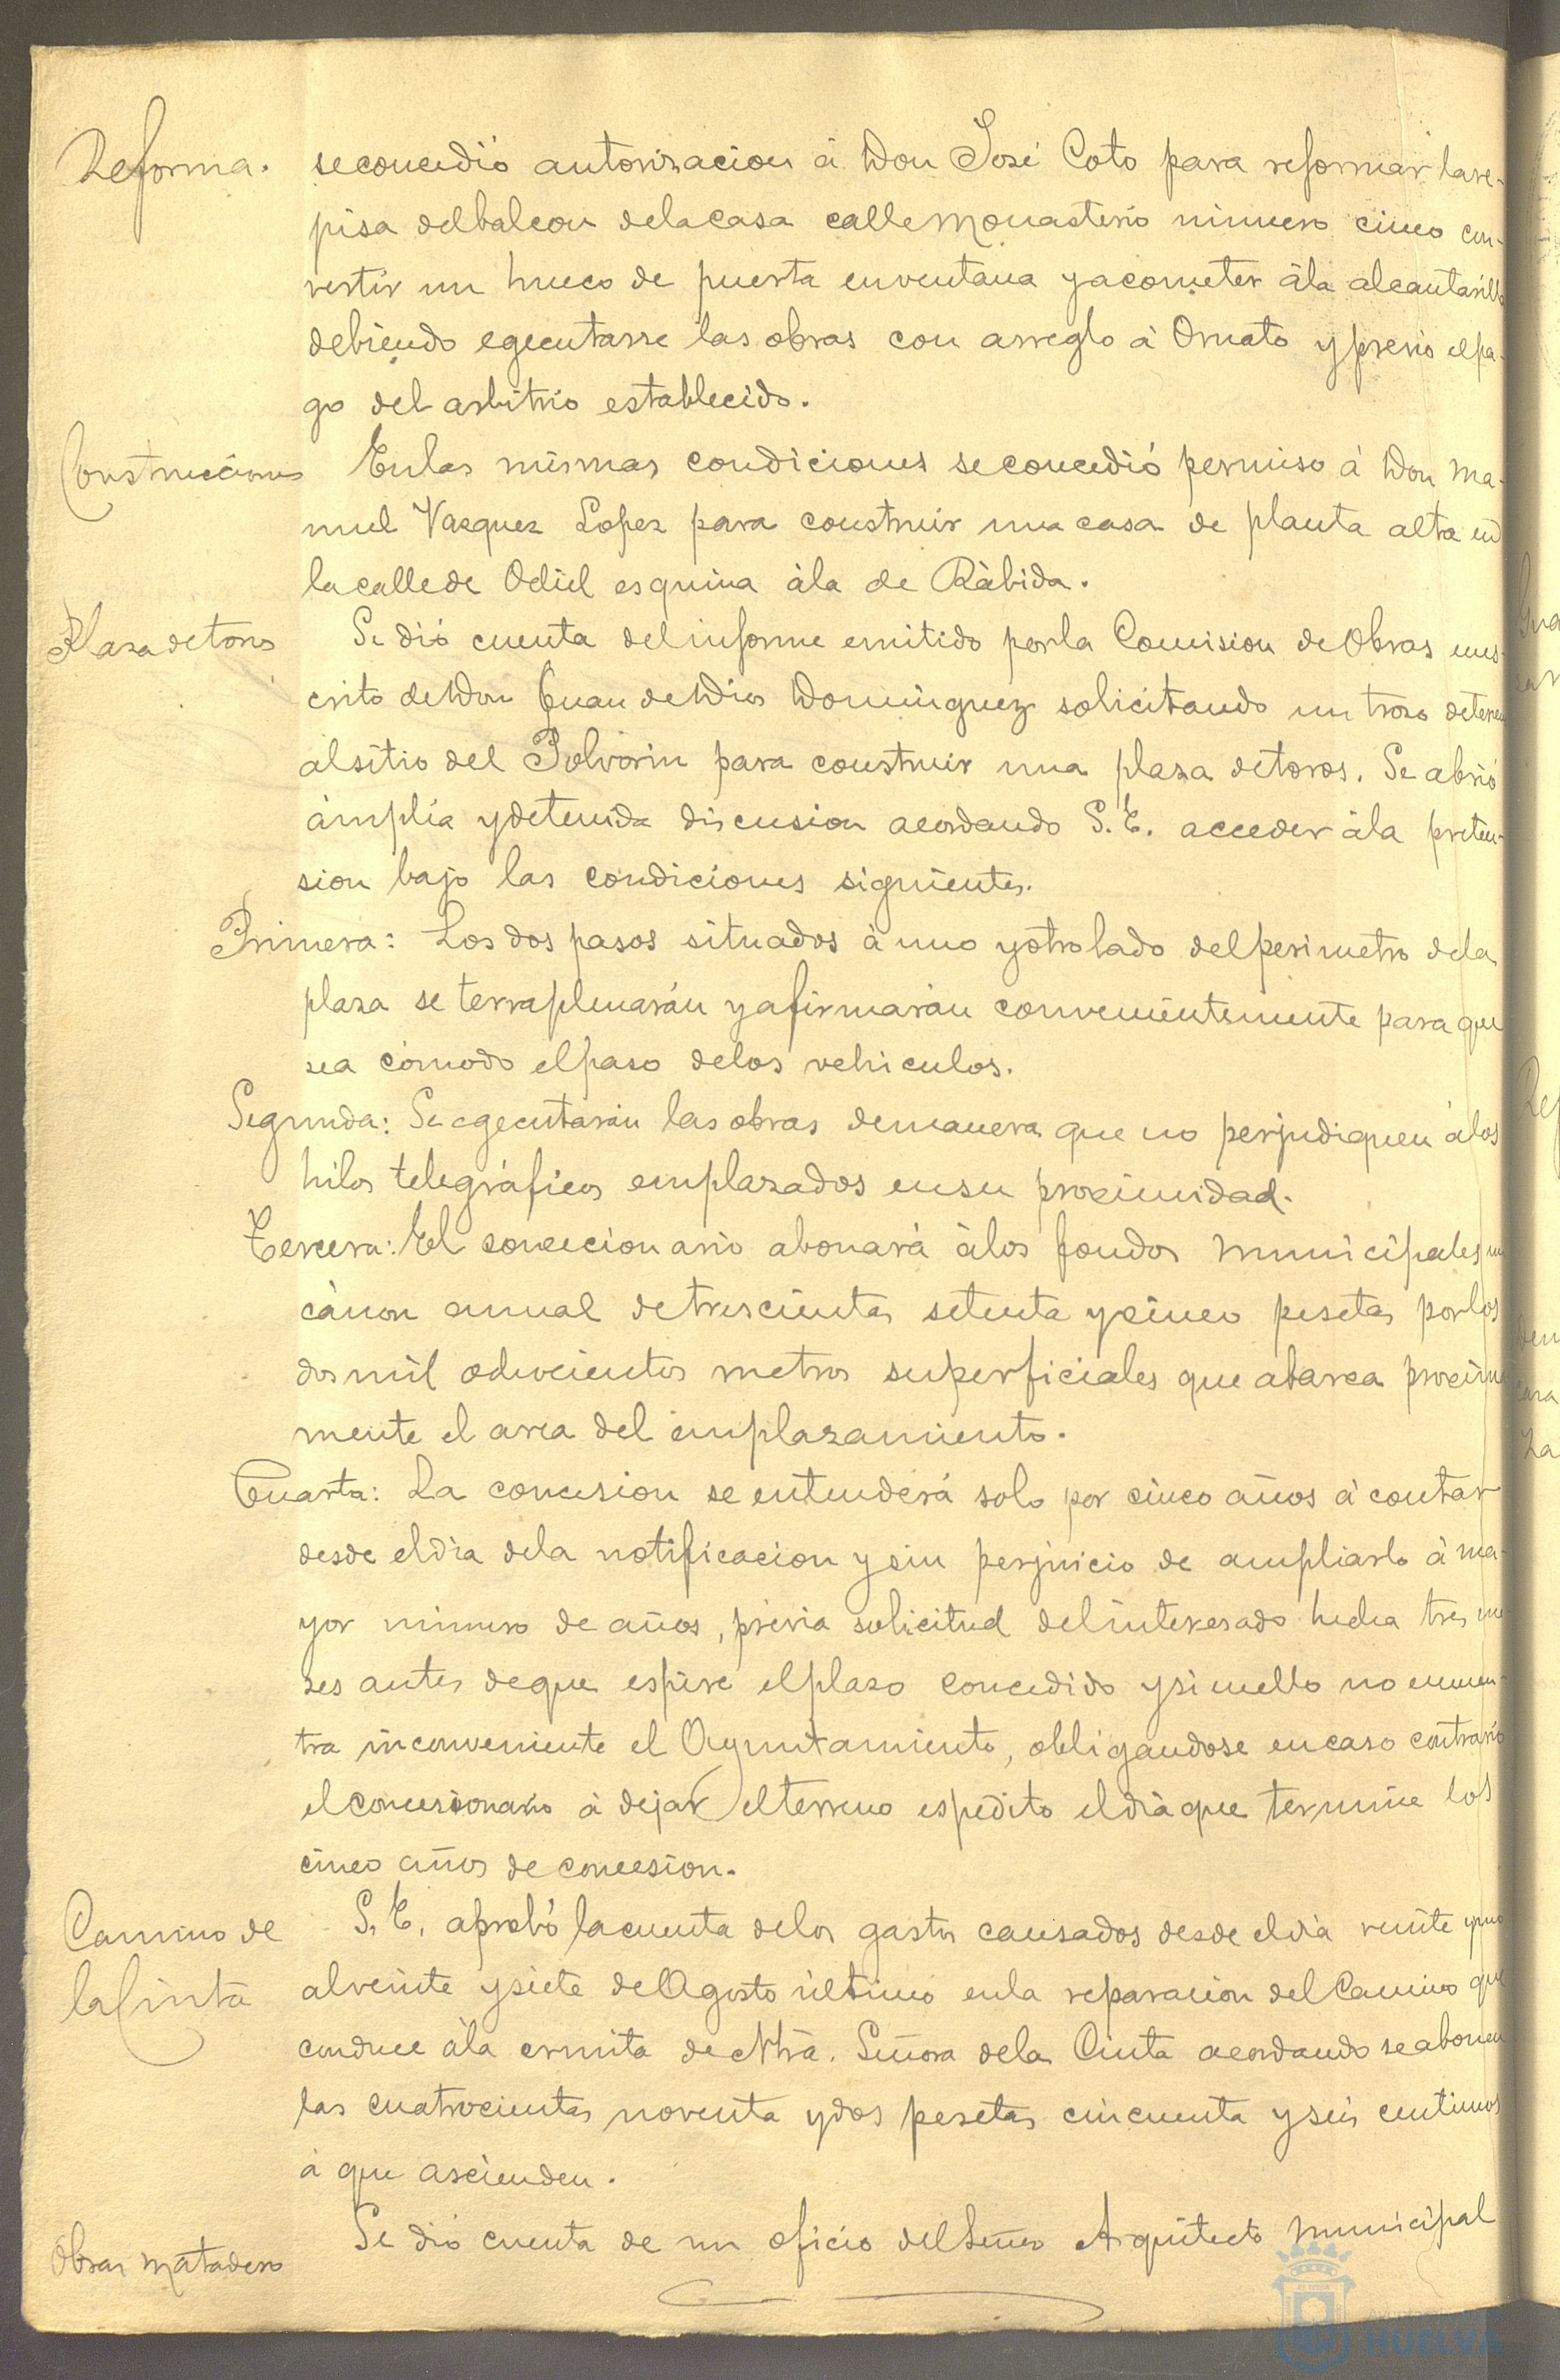 Reforma.
se concedió autorizacion á Don José Coto para reformar la re-
pisa del balcon de la casa calle Monasterio número cinco con-
vertir un hueco de puerta en ventana y acometer á la alcantarilla
debiendo egecutarse las obras con arreglo á Ornato y prévio el pa-
go del arbitrio establecido.
Construcciones
En las mismas condiciones se concedió permiso á Don Ma-
nuel Vazquez Lopez para construir una casa de planta alta en
la calle de Odiel esquina á la de Rábida.
Plaza de toros
Se dió cuenta del informe emitido por la Comision de Obras en es-
crito de Don Juan de Dios Dominguez solicitando un trozo de terreno
al sitio del Polvorin para construir una plaza de toros. Se abrió
ámplia y detenida discusion acordando S. E. acceder á la preten-
sion bajo las condiciones siguientes.
Primera: Los dos pasos situados á uno y otro lado del perimetro de la
plaza se terraplenarán y afirmarán convenientemente para que
sea cómodo el paso de los vehiculos.
Segunda: Se egecutarán las obras de manera que no perjudiquen á los
hilos telegráficos emplazados en su proximidad.
Tercera: El concecionario abonará á los fondos municipales un
cánon anual de trescientas setenta y cinco pesetas por los
dos mil ochocientos metros superficiales que abarca proxima
mente el area del emplazamiento.
Cuarta: La concesion se entenderá solo por cinco años á contar
desde el dia de la notificacion y sin perjuicio de ampliarlo á ma-
yor número de años, prévia solicitud del interesado hecha tres me
ses antes de que espire el plazo concedido y si en ello no encuen-
tra inconveniente el Ayuntamiento, obligandose en caso contrario
el concesionario á dejar el terreno espedito el dia que termine los
cinco años de concesion.
Camino de
la Cinta
S. E. aprobó la cuenta de los gastos causados desde el dia veinte y uno
al veinte y siete de Agosto último en la reparacion del Camino que
conduce á la ermita de Ntra. Señora de la Cinta acordando se abonen
las cuatrocientas noventa y dos pesetas cincuenta y seis centimos
á que ascienden.
Obras matadero
Se dió cuenta de un oficio del Señor Arquitecto Municipal
HUELVA